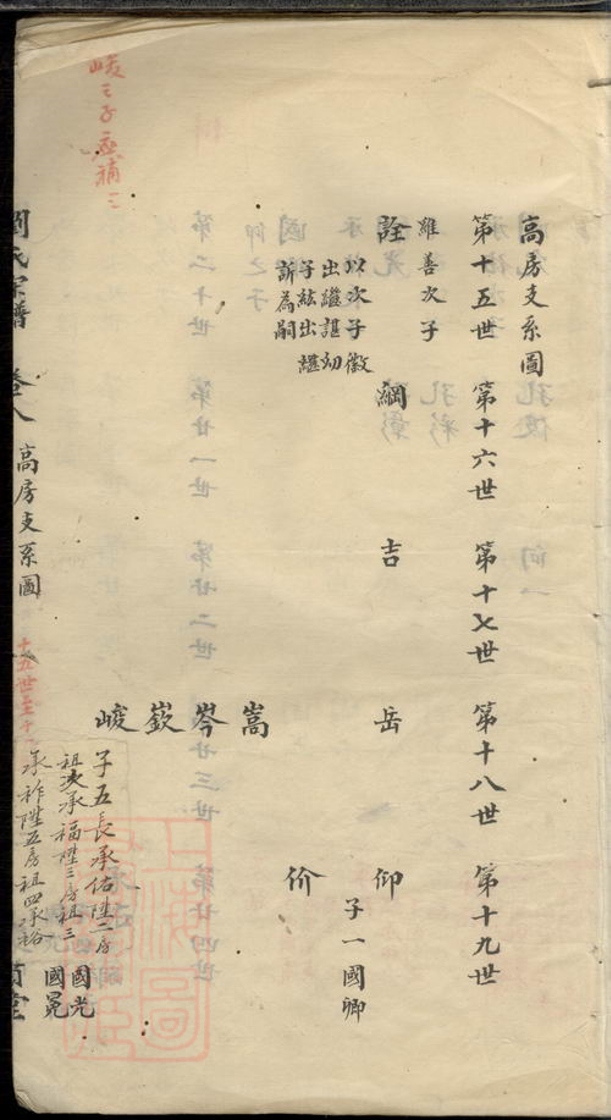 高房支系圖
第十五世 第十六世 第十七世 第十八世 第十九世
維善次子
詮 綱 吉 岳 仰
以次子徽
出繼諶幼
子絃出諶
訴為嗣
子一國卿
价
嵩
岑
嶔
峻
子五長承佑陞二房
祖次承福陞三房祖三
承祚陞五房祖四承裕
國光
國冕
峻之子應補三
劉氏宗譜 卷八 高房支系圖
十五世至十